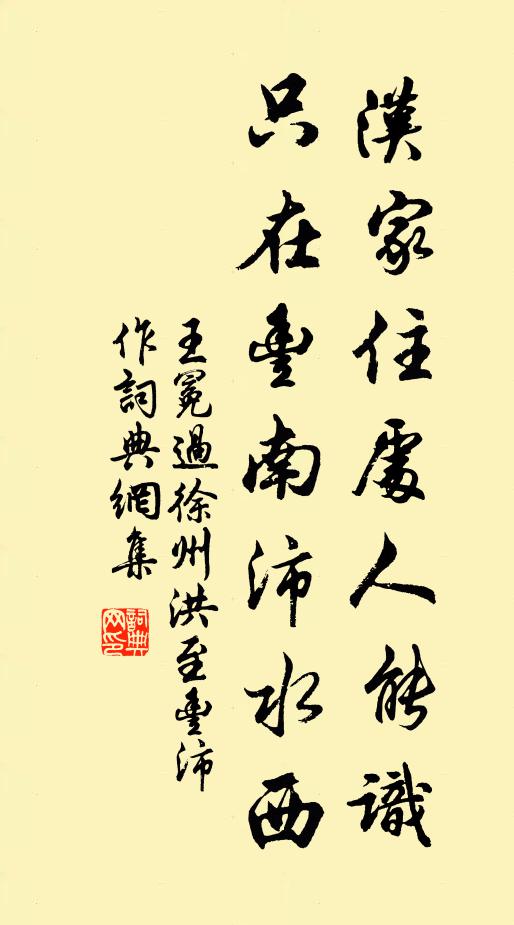 漢家住處人能識
只在豐南沛水西
王冕過徐州洪至豐沛
作詞典網集
詞典
网印